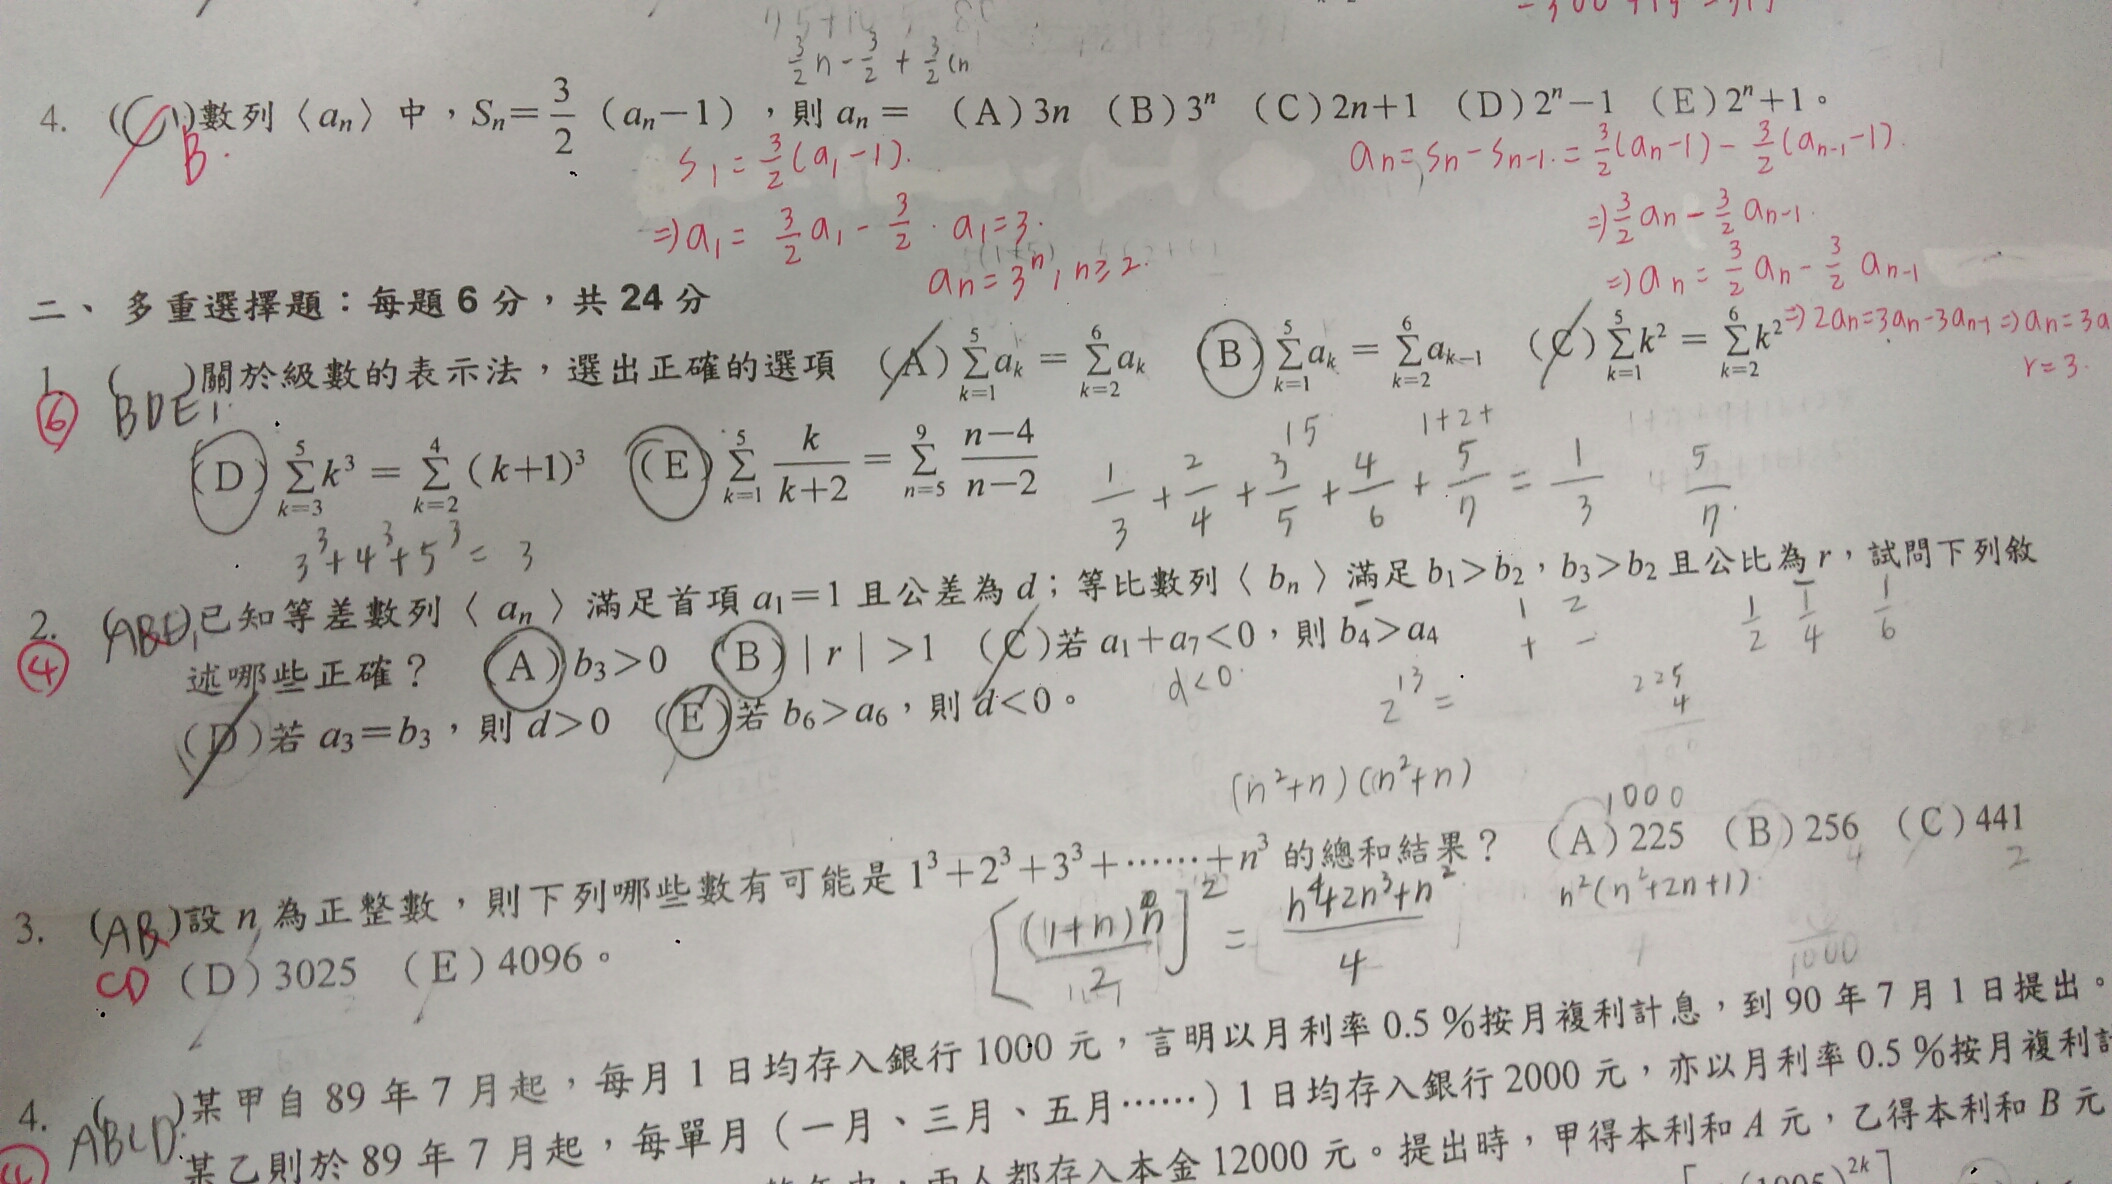 3/2 n - 3/2 + 3/2 (n
4. ( )數列〈aₙ〉中，Sₙ=3/2（aₙ−1），則 aₙ= （A）3n （B）3ⁿ （C）2n+1 （D）2ⁿ−1 （E）2ⁿ+1。
B.
S₁ = 3/2 (a₁-1).
aₙ = Sₙ - Sₙ₋₁. = 3/2 (aₙ-1) - 3/2 (aₙ₋₁-1).
⇒ a₁ = 3/2 a₁ - 3/2 . a₁=3.
⇒ 3/2 aₙ - 3/2 aₙ₋₁.
aₙ = 3ⁿ, n≥2.
⇒ aₙ = 3/2 aₙ - 3/2 aₙ₋₁
⇒ 2aₙ=3aₙ-3aₙ₋₁ ⇒ aₙ=3a
r=3.
二、多重選擇題：每題 6 分，共 24 分
1. ( )關於級數的表示法，選出正確的選項 （A）∑_{k=1}^{5} aₖ = ∑_{k=2}^{6} aₖ （B）∑_{k=1}^{5} aₖ = ∑_{k=2}^{6} aₖ₋₁ （C）∑_{k=1}^{5} k² = ∑_{k=2}^{6} k²
⑥ BDE
（D）∑_{k=3}^{5} k³ = ∑_{k=2}^{4}（k+1）³ （E）∑_{k=1}^{5} k/(k+2) = ∑_{n=5}^{9} (n−4)/(n−2)
15 1+2+
1/3 + 2/4 + 3/5 + 4/6 + 5/7 = 1/3 5/7
3³+4³+5³ = 3
2. ( )已知等差數列〈aₙ〉滿足首項 a₁=1 且公差為 d；等比數列〈bₙ〉滿足 b₁>b₂，b₃>b₂ 且公比為 r，試問下列敘
④ 述哪些正確？ （A）b₃>0 （B）｜r｜>1 （C）若 a₁+a₇<0，則 b₄>a₄
1 2 1/2 1/4 1/6
+ −
（D）若 a₃=b₃，則 d>0 （E）若 b₆>a₆，則 d<0。
d<0.
2¹³ =
225
4
900
(n²+n)(n²+n)
1000
3. (AB)設 n 為正整數，則下列哪些數有可能是 1³+2³+3³+……+n³ 的總和結果？ （A）225 （B）256 （C）441
CD （D）3025 （E）4096。
[(1+n)n/2]² = (n⁴+2n³+n²)/4
n²(n²+2n+1)
1000
4. ( )某甲自 89 年 7 月起，每月 1 日均存入銀行 1000 元，言明以月利率 0.5 %按月複利計息，到 90 年 7 月 1 日提出。
ABCD.
某乙則於 89 年 7 月起，每單月（一月、三月、五月……）1 日均存入銀行 2000 元，亦以月利率 0.5 %按月複利計
兩人都存入本金 12000 元。提出時，甲得本利和 A 元，乙得本利和 B 元